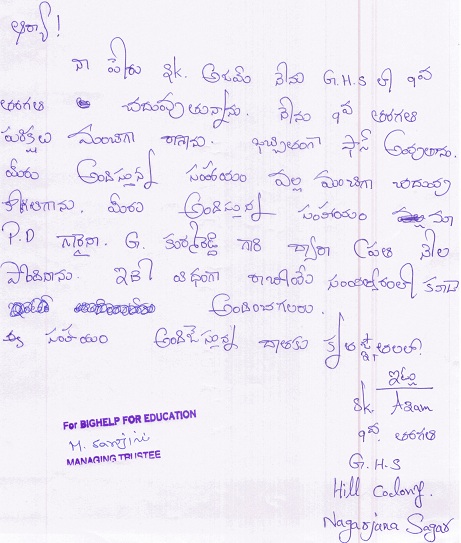 ఆర్యా!
నా పేరు Sk. అజామ్ నేను G.H.S లో 9వ
తరగతి చదువుతున్నాను. నేను 9వ తరగతి
పరిక్షలు మంచిగా రాశాను. ఖచ్చితంగా ఫాస్ అవుతాను.
మీరు అందిస్తున్న సహాయం వల్ల మంచిగా చదువు
కోగలిగాను. మీరు అందిస్తున్న సహాయం మా
P.D గారైన G. గారి ద్వారా ప్రతి నెల
పొందినాను. ఇదే విధంగా రాబోయే సంవత్సరంలో కూడా
అందించగలరు.
సహాయం అందిజేస్తున్న దాతకు కృతజ్ఞతలతో!
ఇట్లు
Sk. Azam
9వ తరగతి
G.H.S
Hill Colony.
Nagarjuna Sagar
For BIGHELP FOR EDUCATION
MANAGING TRUSTEE